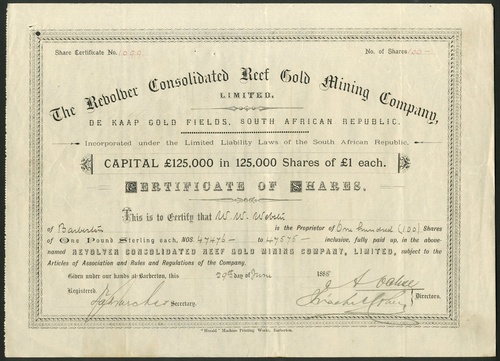 Share Certificate No. 1099
No. of Shares 100
The Revolver Consolidated Reef Gold Mining Company,
LIMITED.
DE KAAP GOLD FIELDS, SOUTH AFRICAN REPUBLIC.
Incorporated under the Limited Liability Laws of the South African Republic.
CAPITAL £125,000 in 125,000 Shares of £1 each.
CERTIFICATE OF SHARES.
This is to Certify that W. W. Webster
of Barberton is the Proprietor of One hundred (100) Shares
of One Pound Sterling each, NOS. 47476 to 47575 inclusive, fully paid up, in the above-
named REVOLVER CONSOLIDATED REEF GOLD MINING COMPANY, LIMITED, subject to the
Articles of Association and Rules and Regulations of the Company.
Given under our hands at Barberton, this 20th day of June 188
Registered
Secretary.
Directors.
Machine Printing Works, Barberton.